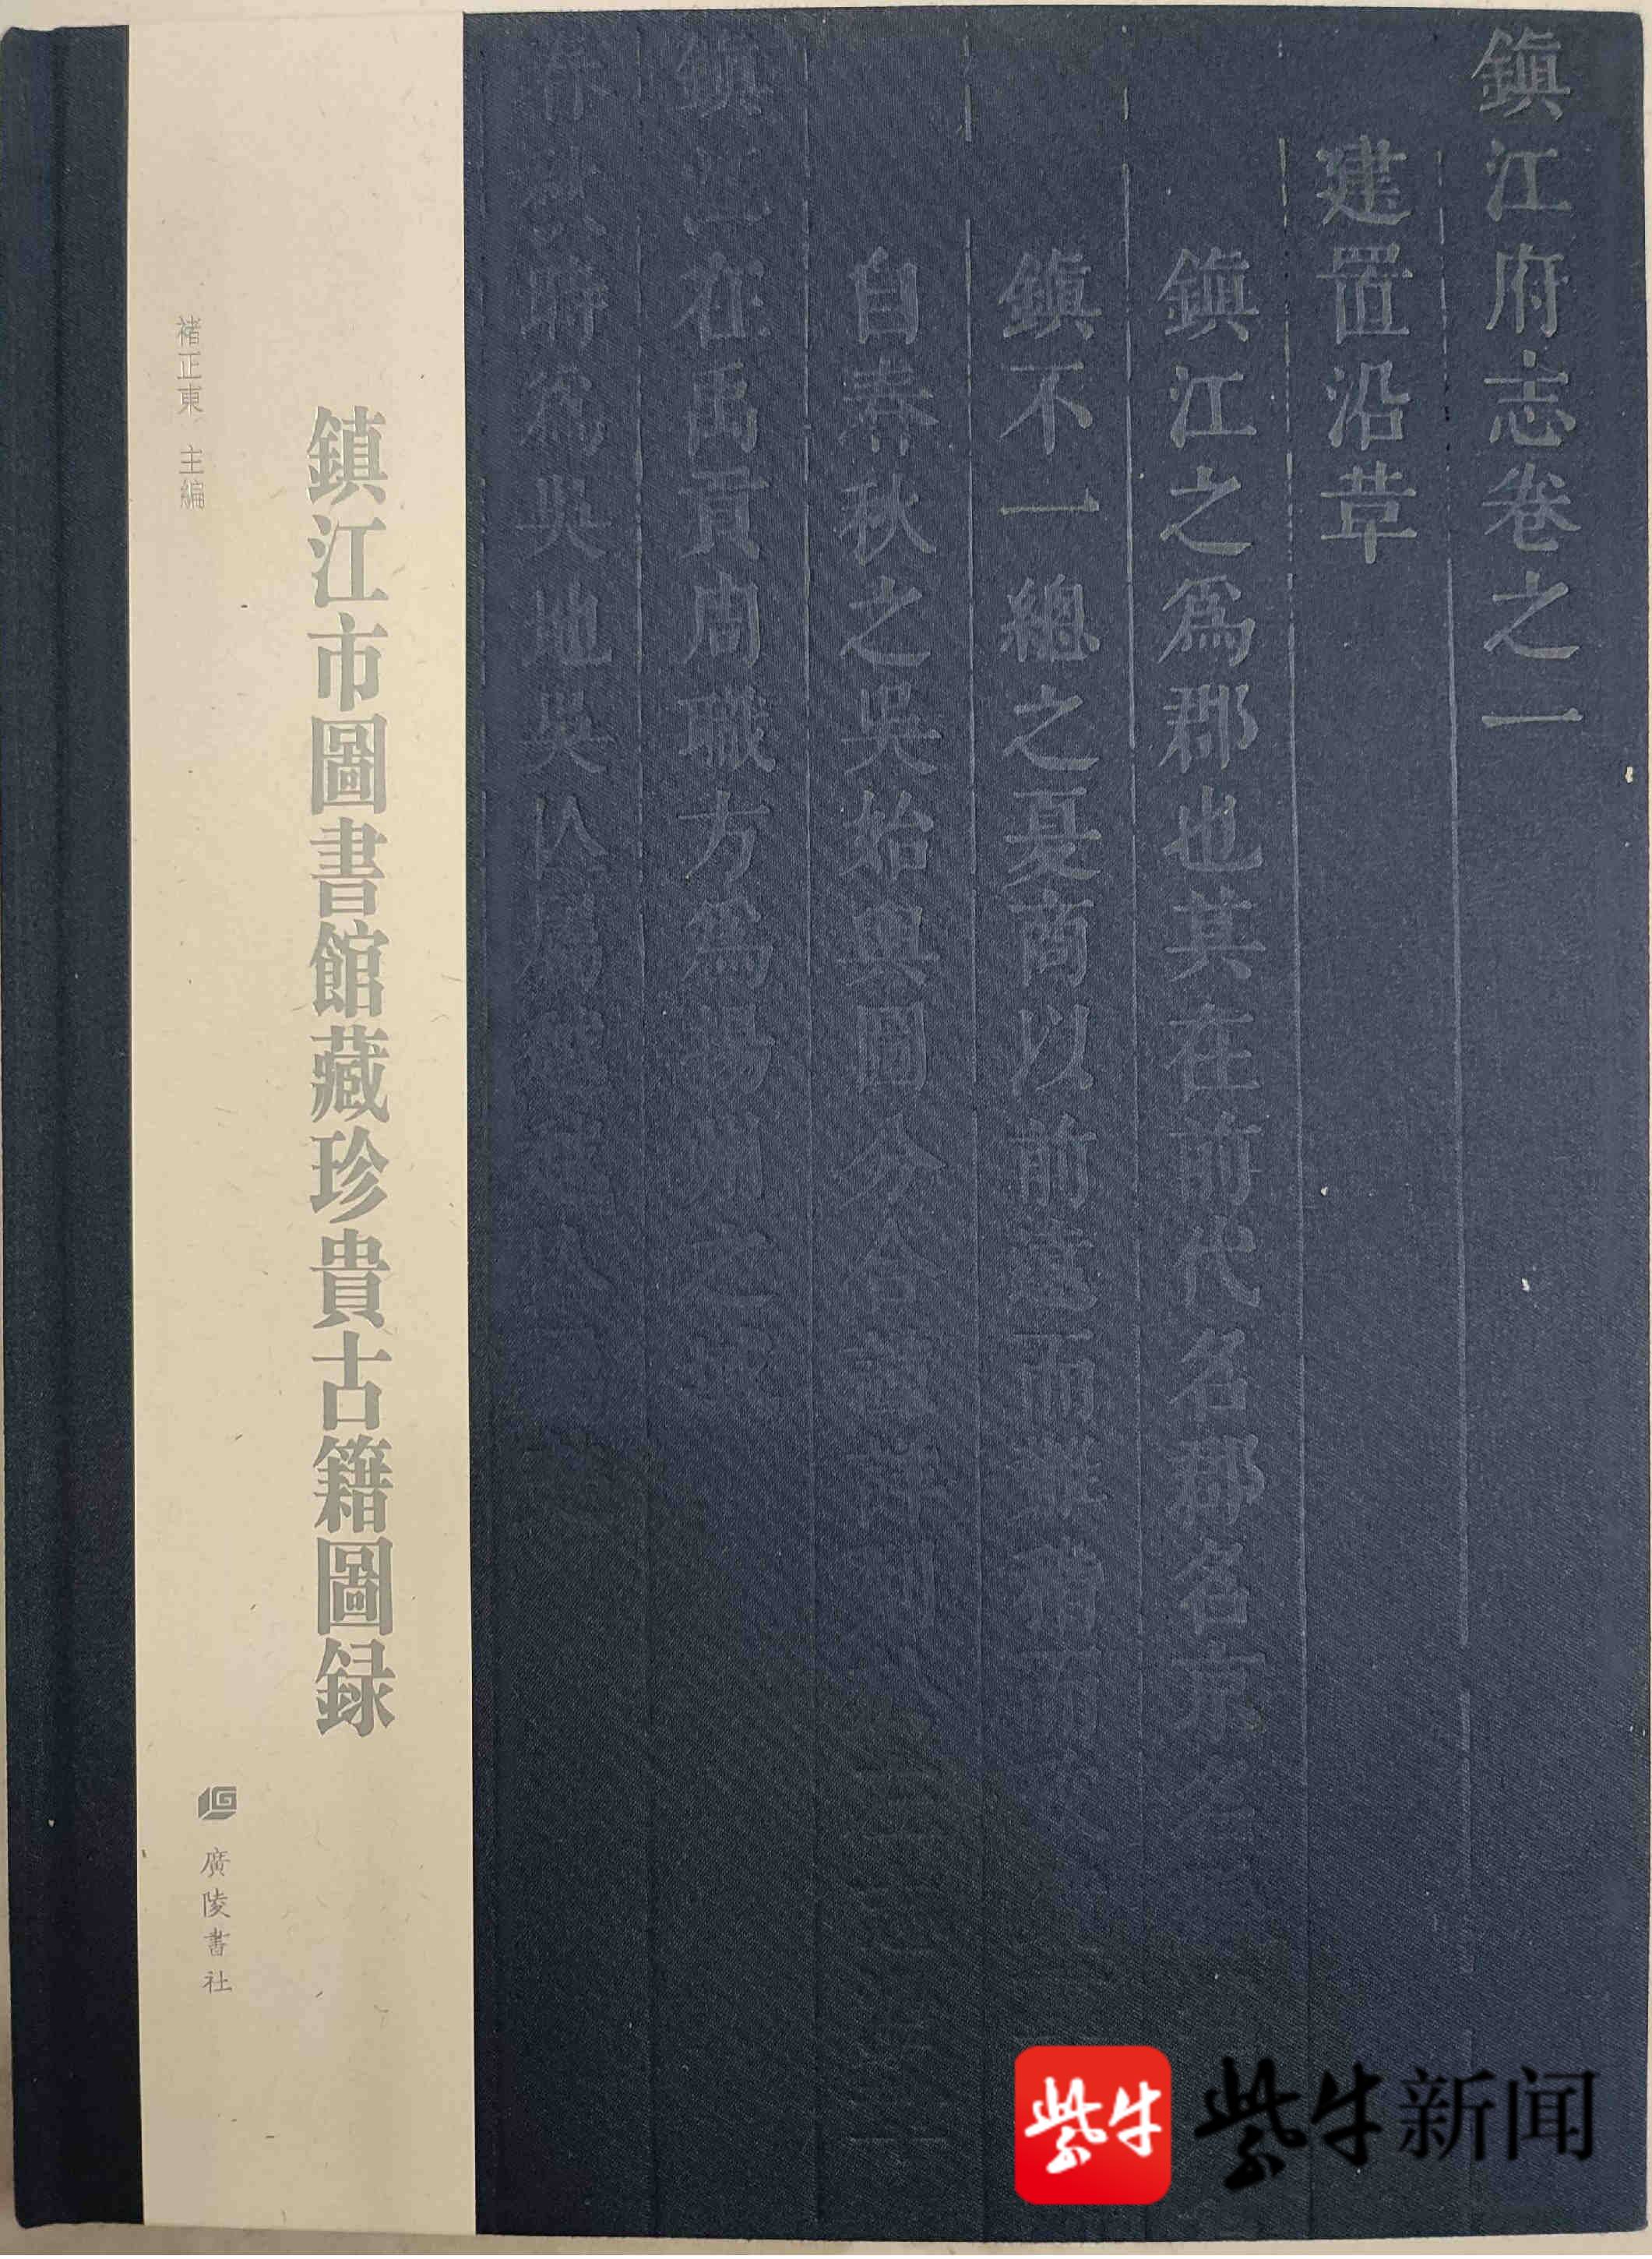 鎮江府志卷之一
建置沿革
鎮江之為郡也其在前代名郡名京名
鎮不一總之夏商以前遠而難稽
自春秋之吳始輿圖分合最詳列
鎮江在禹貢周職方為揚州之域
春秋時為吳地吳入屬越
鎮江市圖書館藏珍貴古籍圖録
褚正東 主編
LG
廣陵書社
紫牛
紫牛新闻